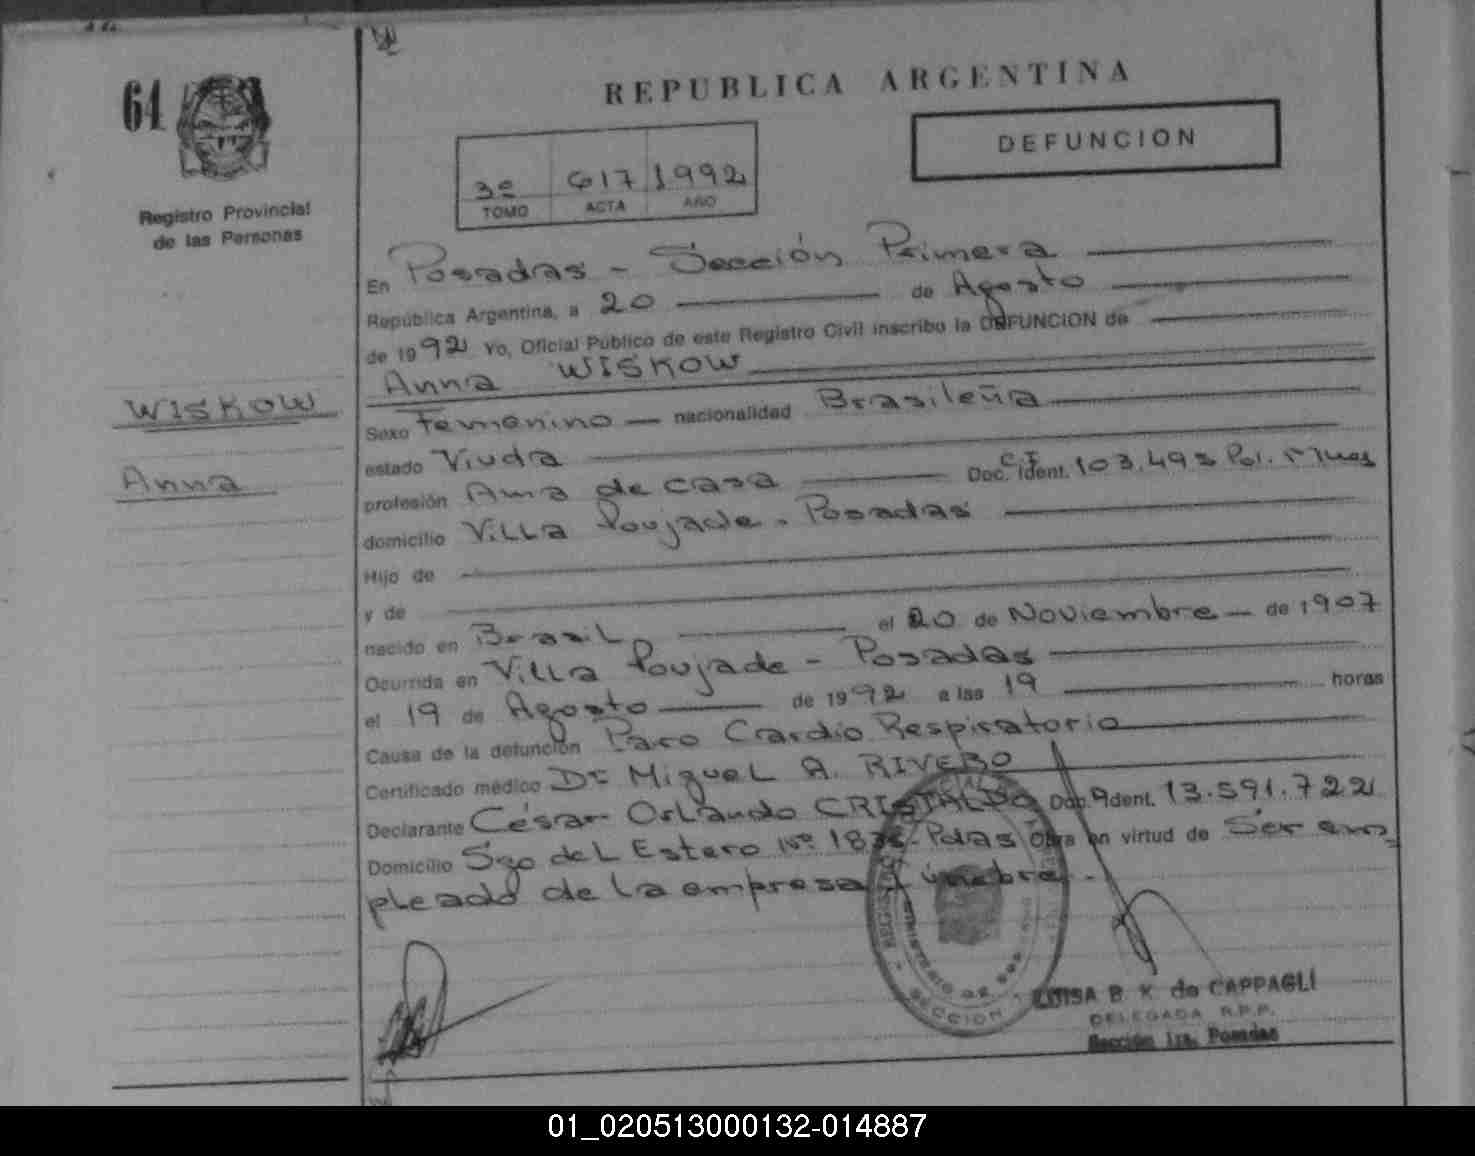 64
REPUBLICA ARGENTINA
DEFUNCION
3º 617 1992
TOMO ACTA AÑO
Registro Provincial
de las Personas
WISKOW
Anna
En Posadas - Sección Primera
República Argentina, a 20 de Agosto
de 1992 Yo, Oficial Público de este Registro Civil inscribo la DEFUNCION de
Anna WISKOW
Sexo Femenino nacionalidad Brasileña
estado Viuda
profesión Ama de casa Doc. Ident. C.I. 103.493 Pol. Mnes
domicilio Villa Poujade - Posadas
Hijo de
y de
nacido en Brasil el 20 de Noviembre de 1907
Ocurrida en Villa Poujade - Posadas
el 19 de Agosto de 1992 a las 19 horas
Causa de la defunción Paro Cardio Respiratorio
Certificado médico Dr Miguel A. RIVERO
Declarante César Orlando CRISTALDO Doc. Ident. 13.591.722
Domicilio Sgo del Estero Nº Pdas Obra en virtud de Ser em=
pleado de la empresa fúnebre.
REGISTRO
MINISTERIO DE
SECCION
LUISA B. K. de CAPPAGLI
DELEGADA R.P.P.
Sección 1ra. Posadas
01_020513000132-014887